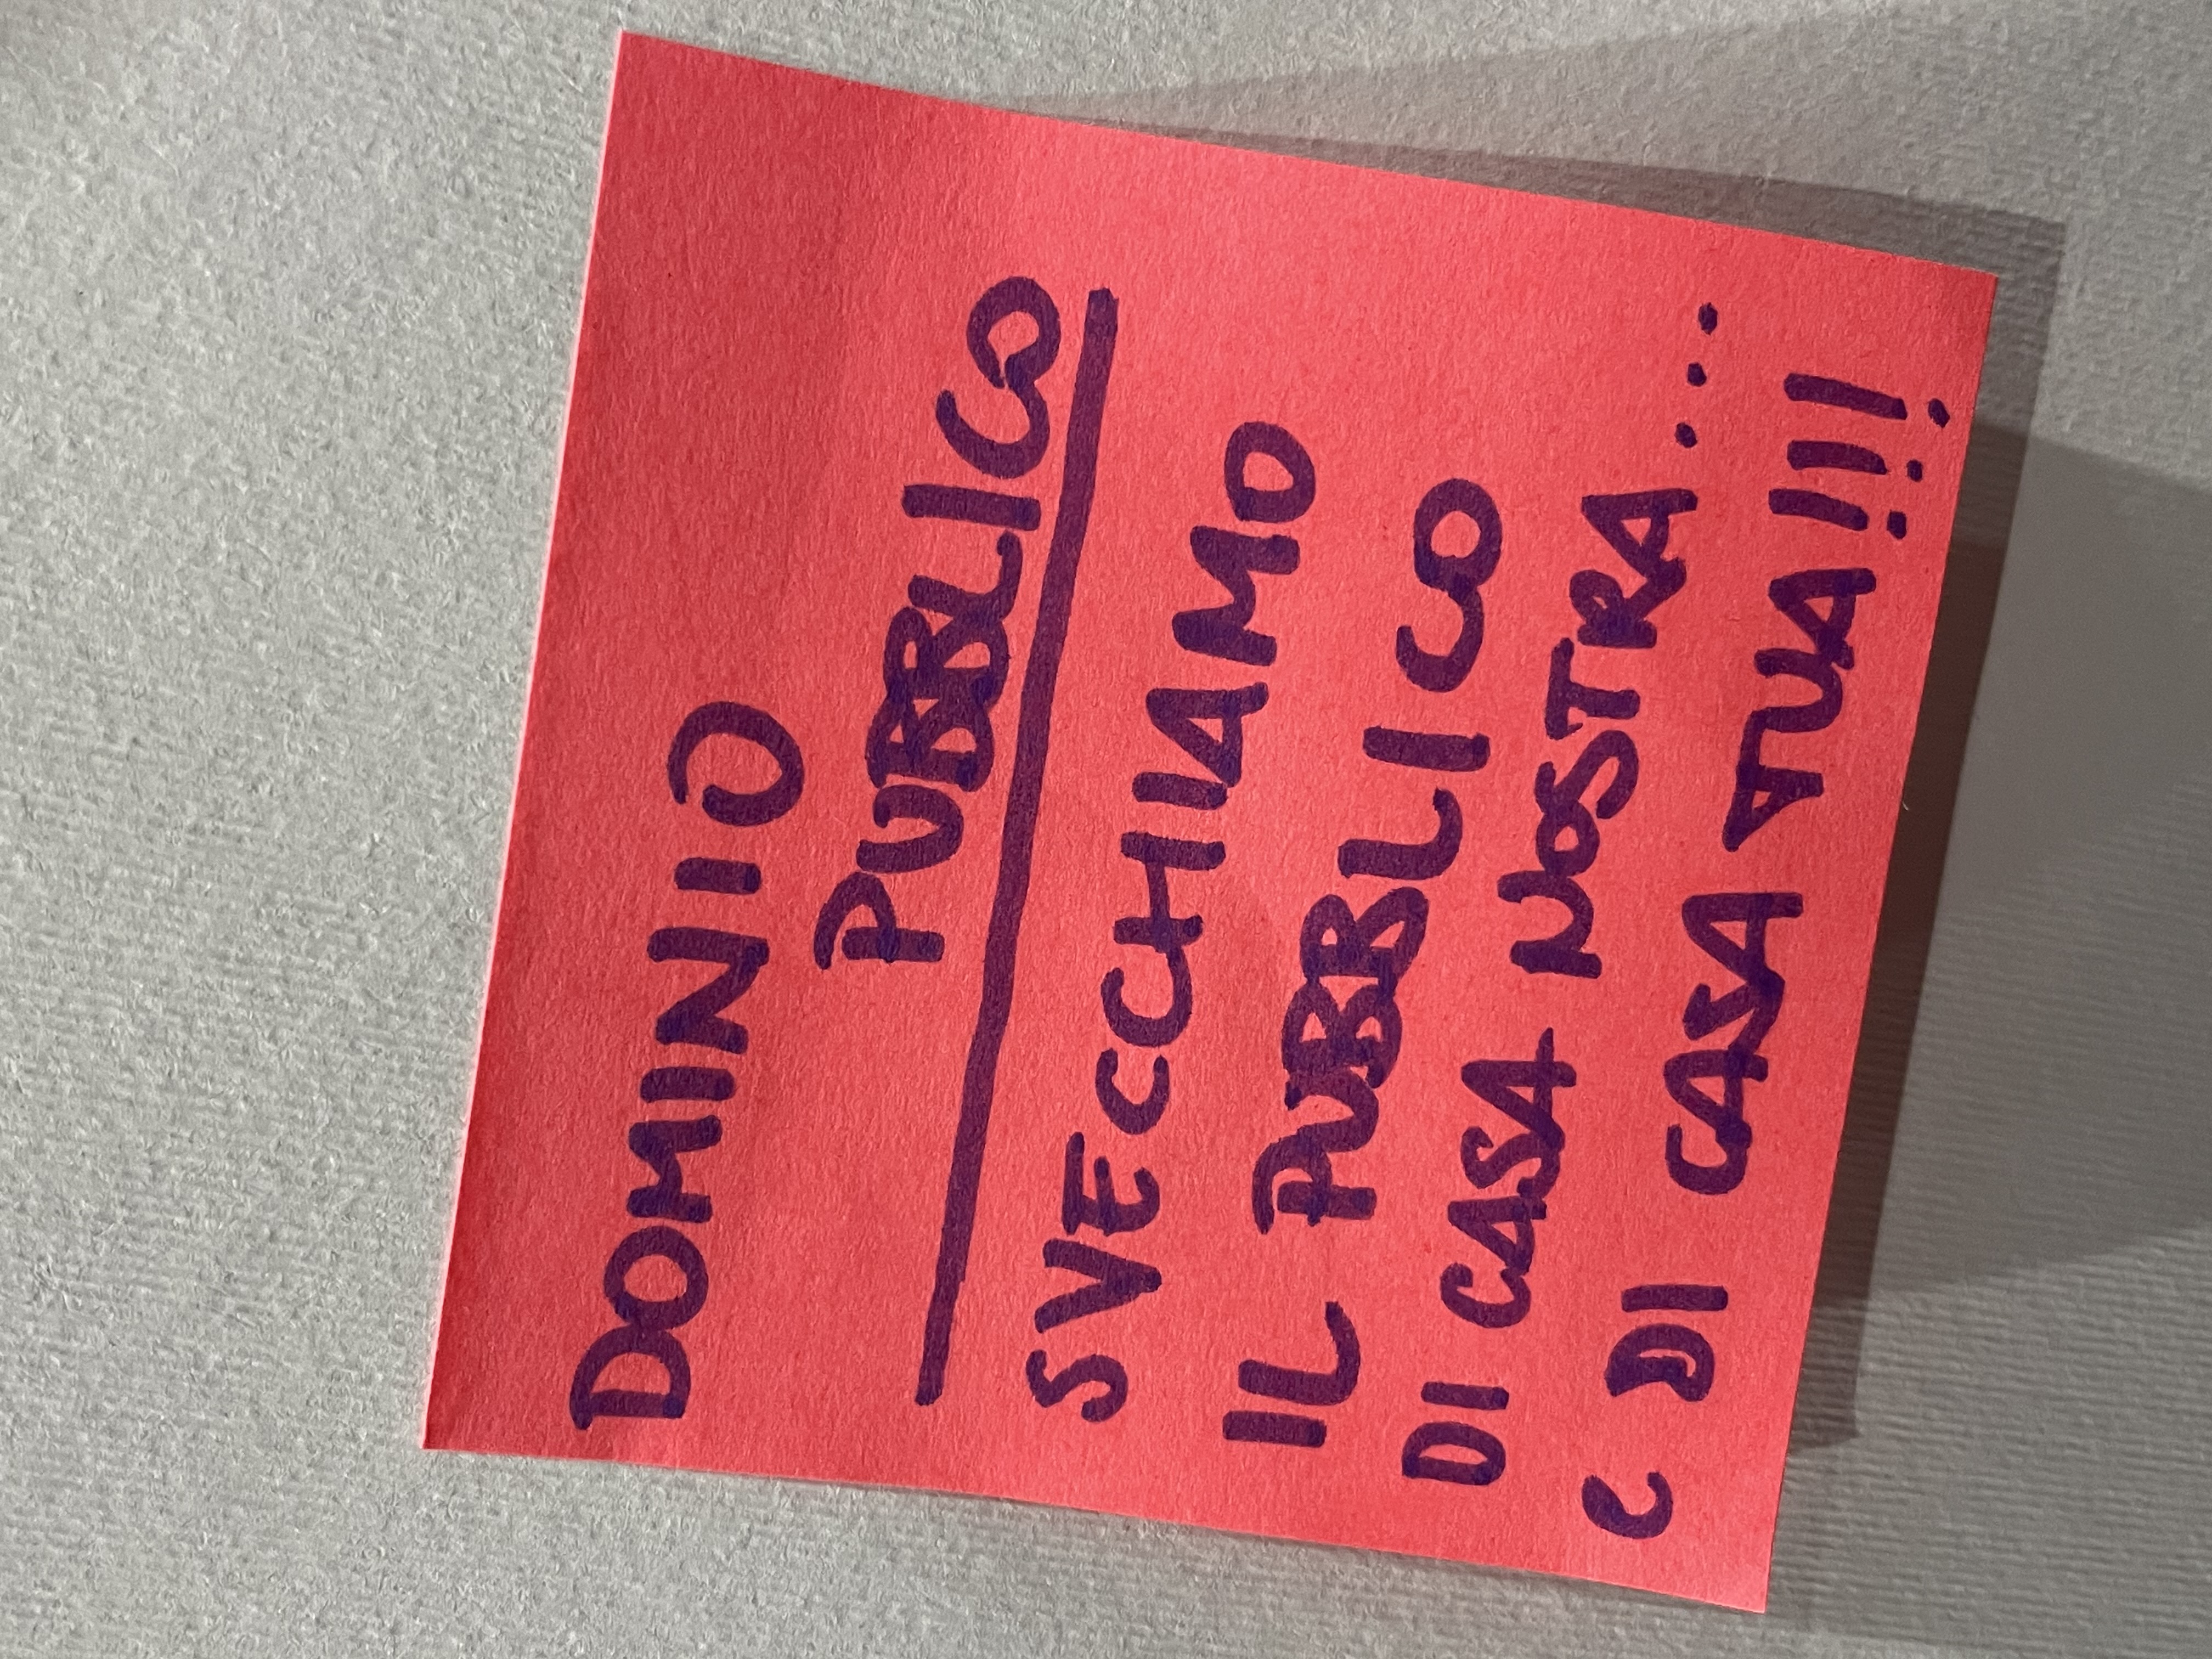 DOMINIO
PUBBLICO
SVECCHIAMO
IL PUBBLICO
DI CASA NOSTRA...
C DI CASA TUA!!!